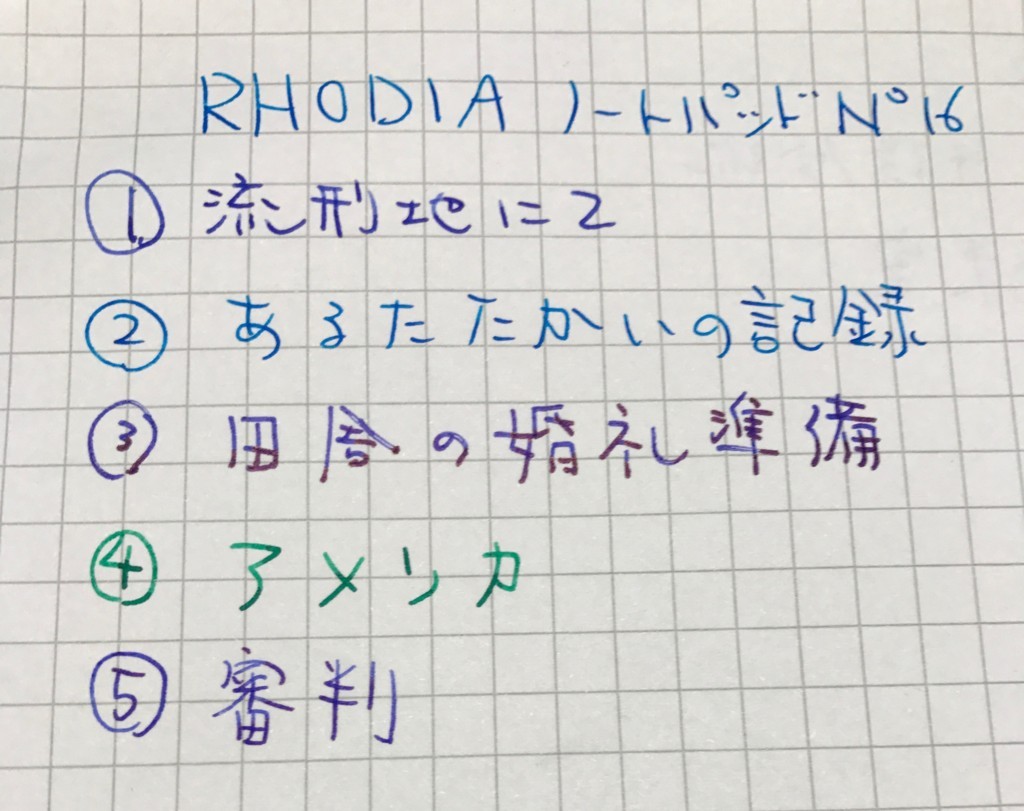 RHODIA ノートパッド Nº16
① 流刑地にて
② あるたたかいの記録
③ 田舎の婚礼準備
④ アメリカ
⑤ 審判